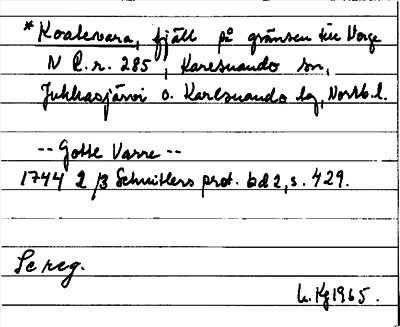 *Koatevara, fjäll på gränsen till Norge
N R.r. 285, Karesuando sn,
Jukkasjärvi o. Karesuando lg, Nortb.l.
-- Gotte Varre --
1744 2/3 Schnitlers prot. bd 2, s. 429.
Se reg.
L. Kg 1965.